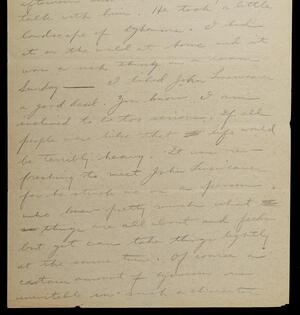 afternoon and
talk with him. He took a little
landscape of Dykmans. I had
it on the wall at home and it
was a rich thing in a room
Sunday — I liked John
a good deal. You know I am
inclined to be too serious. If all
people were like that life would
be terribly heavy. It was re-
freshing to meet John
for he struck me as a person
who knew pretty much what
things are all about and feels
but yet can take things lightly
at the same time. Of course a
certain amount of cynicism is
inevitable in such a character